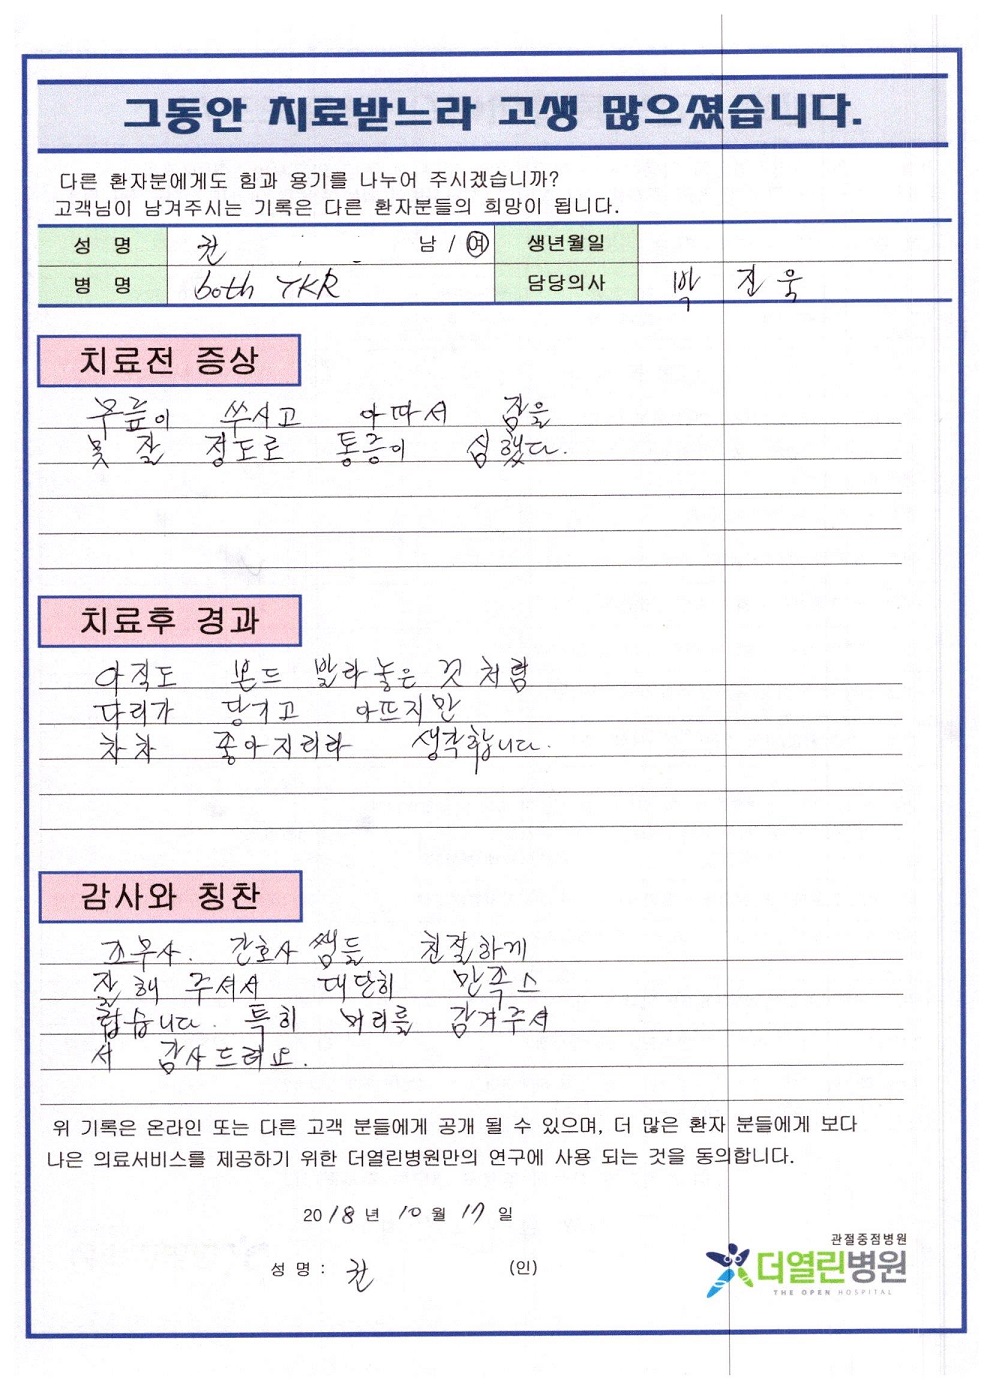 그동안 치료받느라 고생 많으셨습니다.
다른 환자분에게도 힘과 용기를 나누어 주시겠습니까?
고객님이 남겨주시는 기록은 다른 환자분들의 희망이 됩니다.
성 명 권 남 / 여 생년월일
병 명 both TKR 담당의사 박 진 욱
치료전 증상
무릎이 쑤시고 아파서 잠을
못 잘 정도로 통증이 심했다.
치료후 경과
아직도 본드 발라놓은 것 처럼
다리가 당기고 아프지만
차차 좋아지리라 생각합니다.
감사와 칭찬
조무사. 간호사 쌤들 친절하게
잘 해 주셔서 대단히 만족스
럽습니다. 특히 머리를 감겨주셔
서 감사드려요.
위 기록은 온라인 또는 다른 고객 분들에게 공개 될 수 있으며, 더 많은 환자 분들에게 보다
나은 의료서비스를 제공하기 위한 더열린병원만의 연구에 사용 되는 것을 동의합니다.
2018 년 10 월 17 일
성 명 : 권 (인)
관절중점병원
더열린병원
THE OPEN HOSPITAL